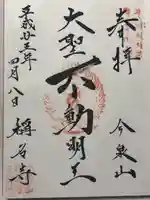 奉拝
今泉山
大聖不動明王
平成廿三年
四月八日
称名寺